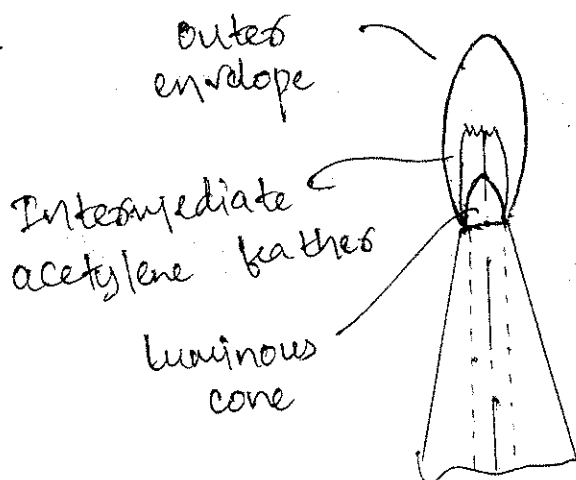 outer
envelope
Intermediate
acetylene feather
luminous
cone